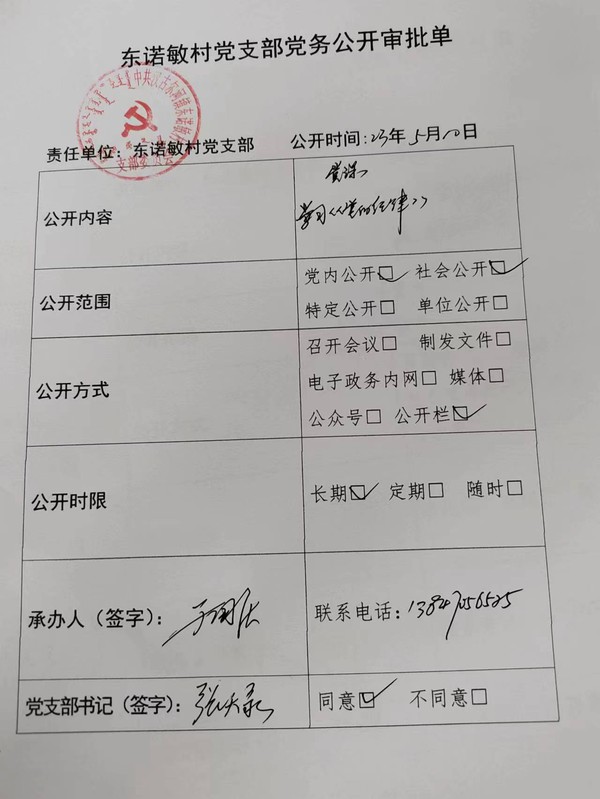 东诺敏村党支部党务公开审批单
责任单位：东诺敏村党支部 公开时间:23年5月10日
公开内容
党课
学习《党的纪律》
公开范围
党内公开☑ 社会公开☑
特定公开□ 单位公开□
公开方式
召开会议□ 制发文件□
电子政务内网□ 媒体□
公众号□ 公开栏☑
公开时限
长期☑ 定期□ 随时□
承办人（签字）：
联系电话：13847056525
党支部书记（签字）：
同意☑ 不同意□